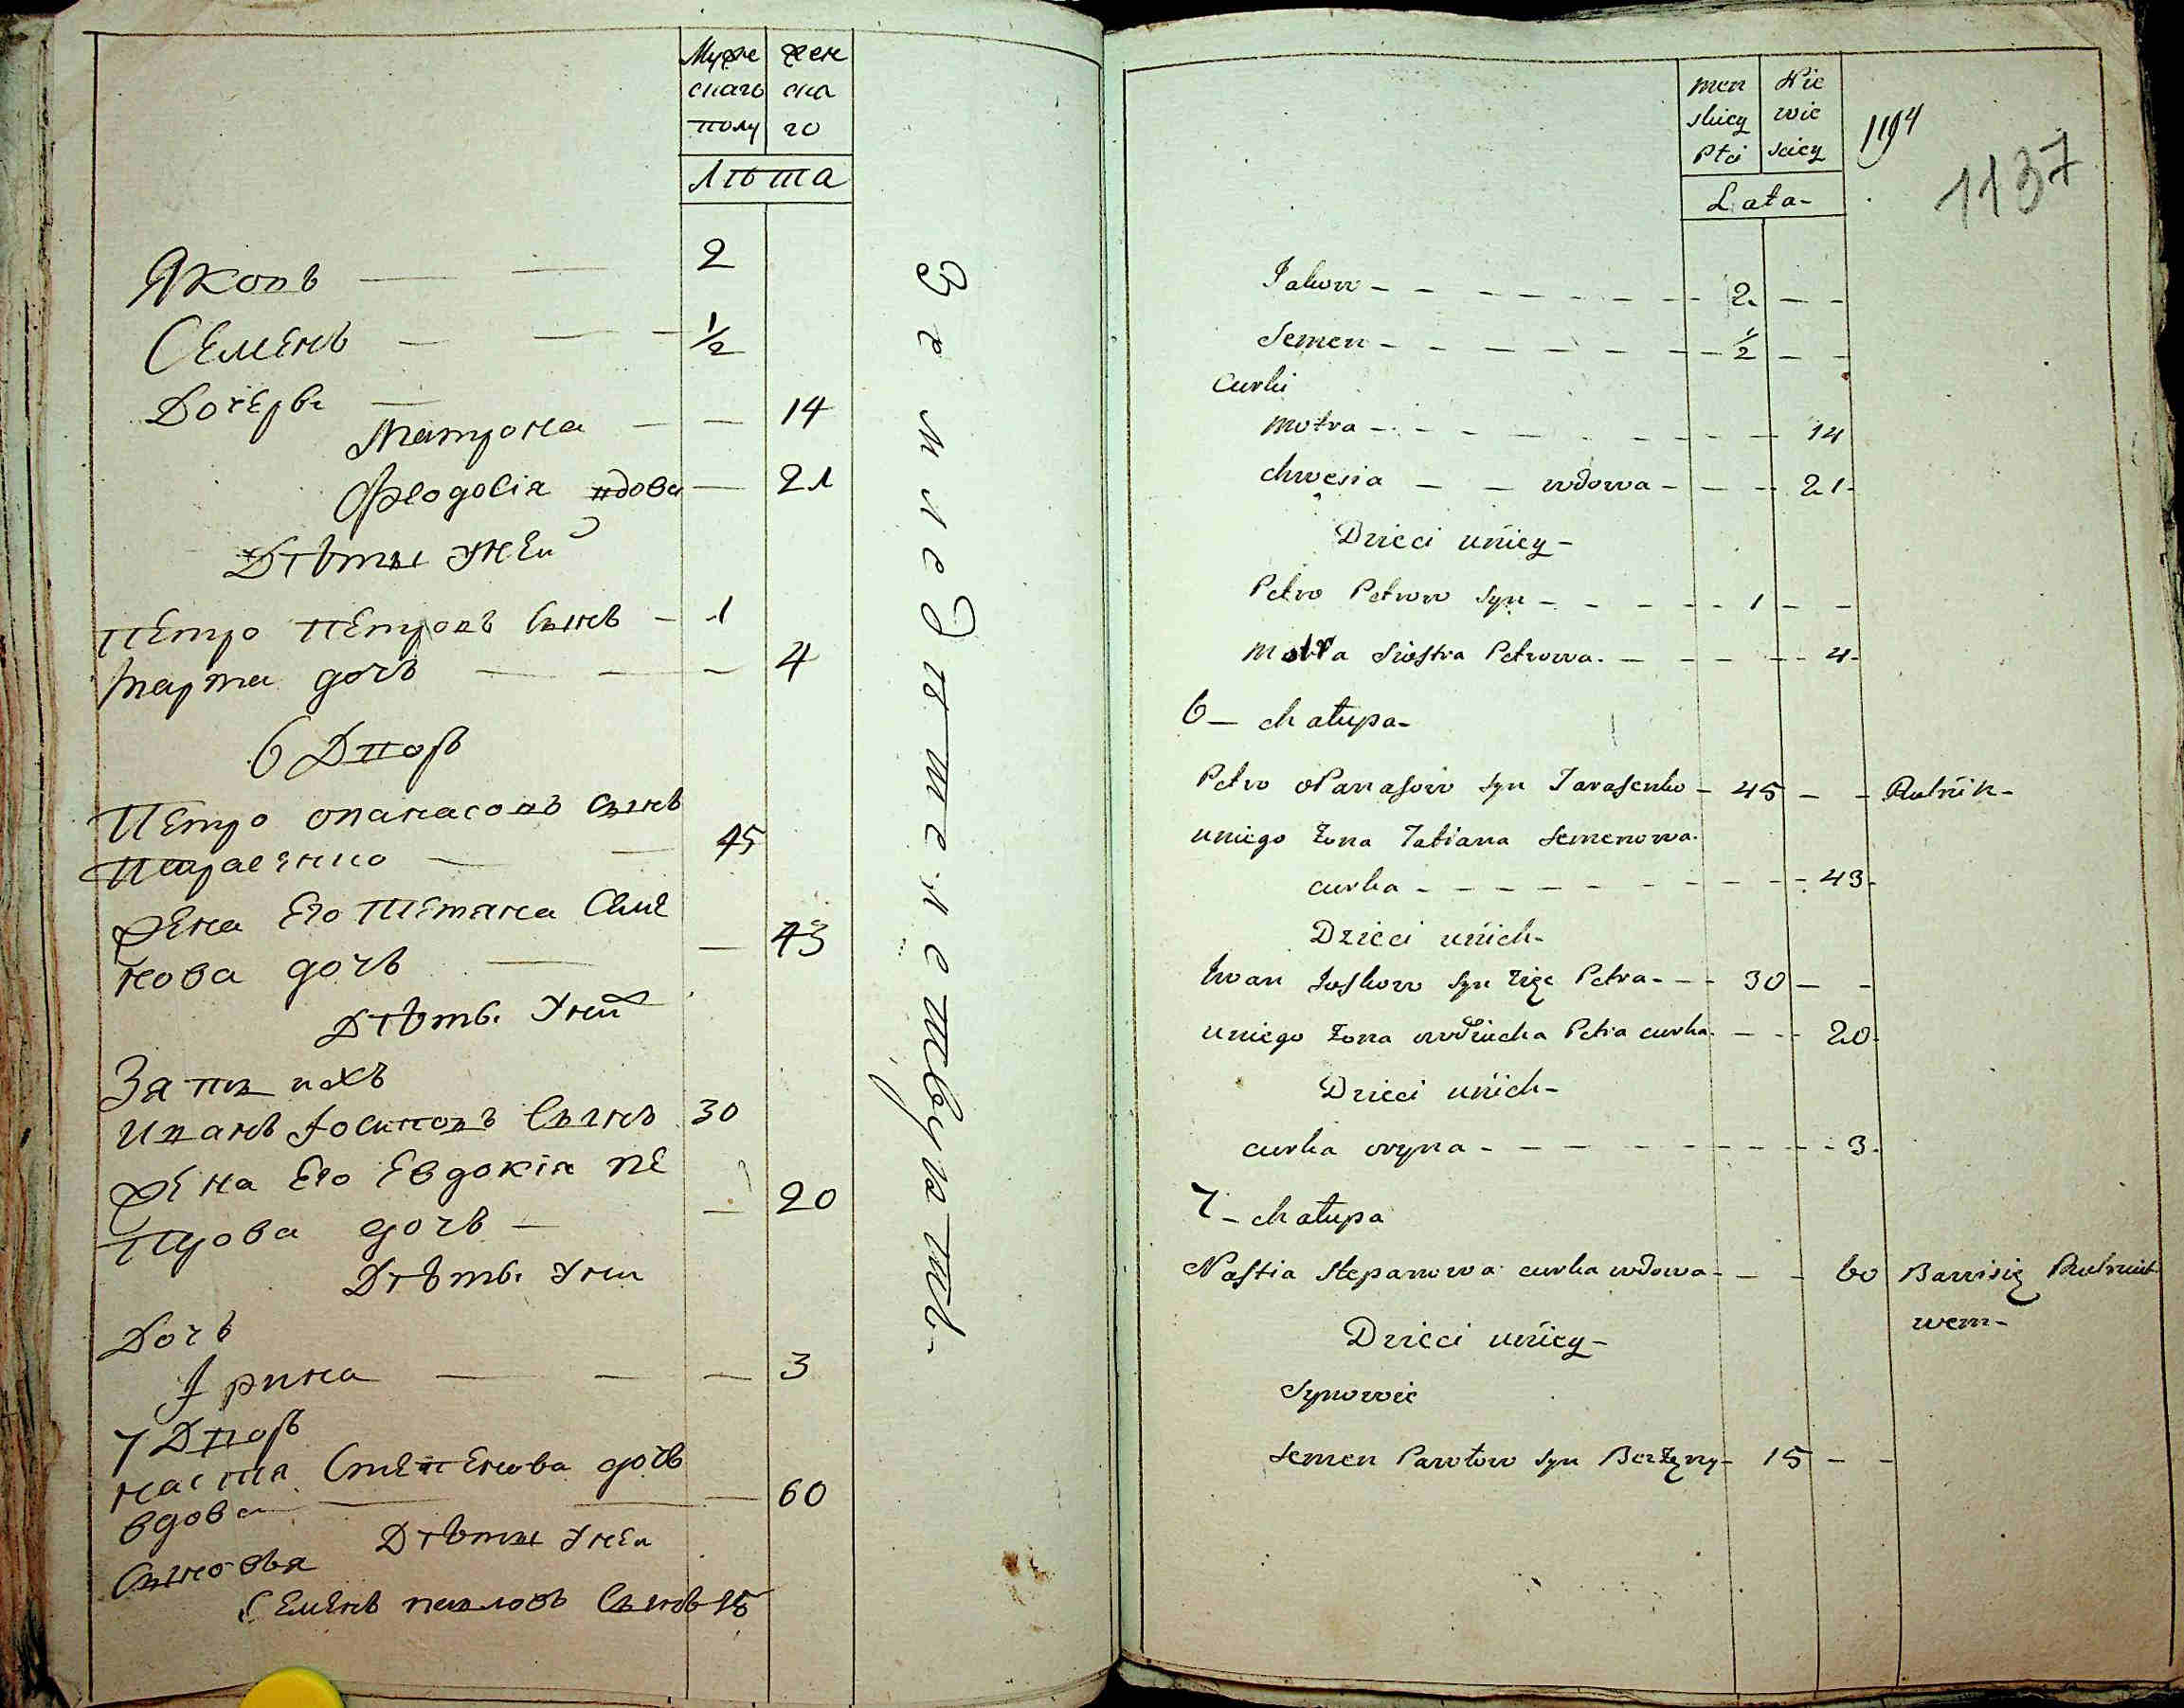 Муже
скаго
полу
жен
ска
го
Лѣта
Яковъ — — 2
Семенъ — — — ½
Дочерѣ —
Матрона — — 14
Феодосія вдова — 21
Дѣты Унеи
Петро Петровъ Сынъ — 1
Марта дочь — — — 4
6 Дворъ
Петро опанасовъ Сынъ
— — 45
жена Его Тетяна Семе
нова дочь — — 43
Дѣтъ Уныхъ
Иванъ Іосиповъ Сынъ 30
жена Его Евдокія пе
трова дочь — — 20
Дѣтъ Уни
Дочь
Ірина — — — 3
7 Дворъ
настя Степенова дочь
вдова — — — 60
Дѣты Унеи
Сыновья
Семенъ павловъ Сынъ 15
Землед ѣ т е л с т в у ю т ъ
men
skiey
Płci
Nie
wie
sciey
Lata-
1194
1137
Jakow - - - - - - - - 2. - -
Semen - - - - - - - - ½ - -
Curki
Motra - - - - - - - - - 14
Chwesia - - wdowa - - - 21-
Dzieci uniey-
Petro Petrow Syn - - - - - 1 - -
Motra Siostra Petrowa. - - - - - 4-
6 - chałupa-
Petro oPanasow Syn Tarasenko - 45 - - Rolnik-
uniego Żona Tatiana Semenowa.
curka - - - - - - - - - - 43-
Dzieci unich-
Iwan Joskow Syn Zięc Petra. - - 30 - -
uniego Żona owdiucha Petra curka. - - - 20-
Dzieci unich-
curka oryna - - - - - - - - - - 3.
7 - chałupa
Nastia Stepanowa curka wdowa - - - 60 Bawisię Rolnict
wem-
Dzieci uniey-
Synowie
Semen Pawłow Syn Berżyny - 15 - -